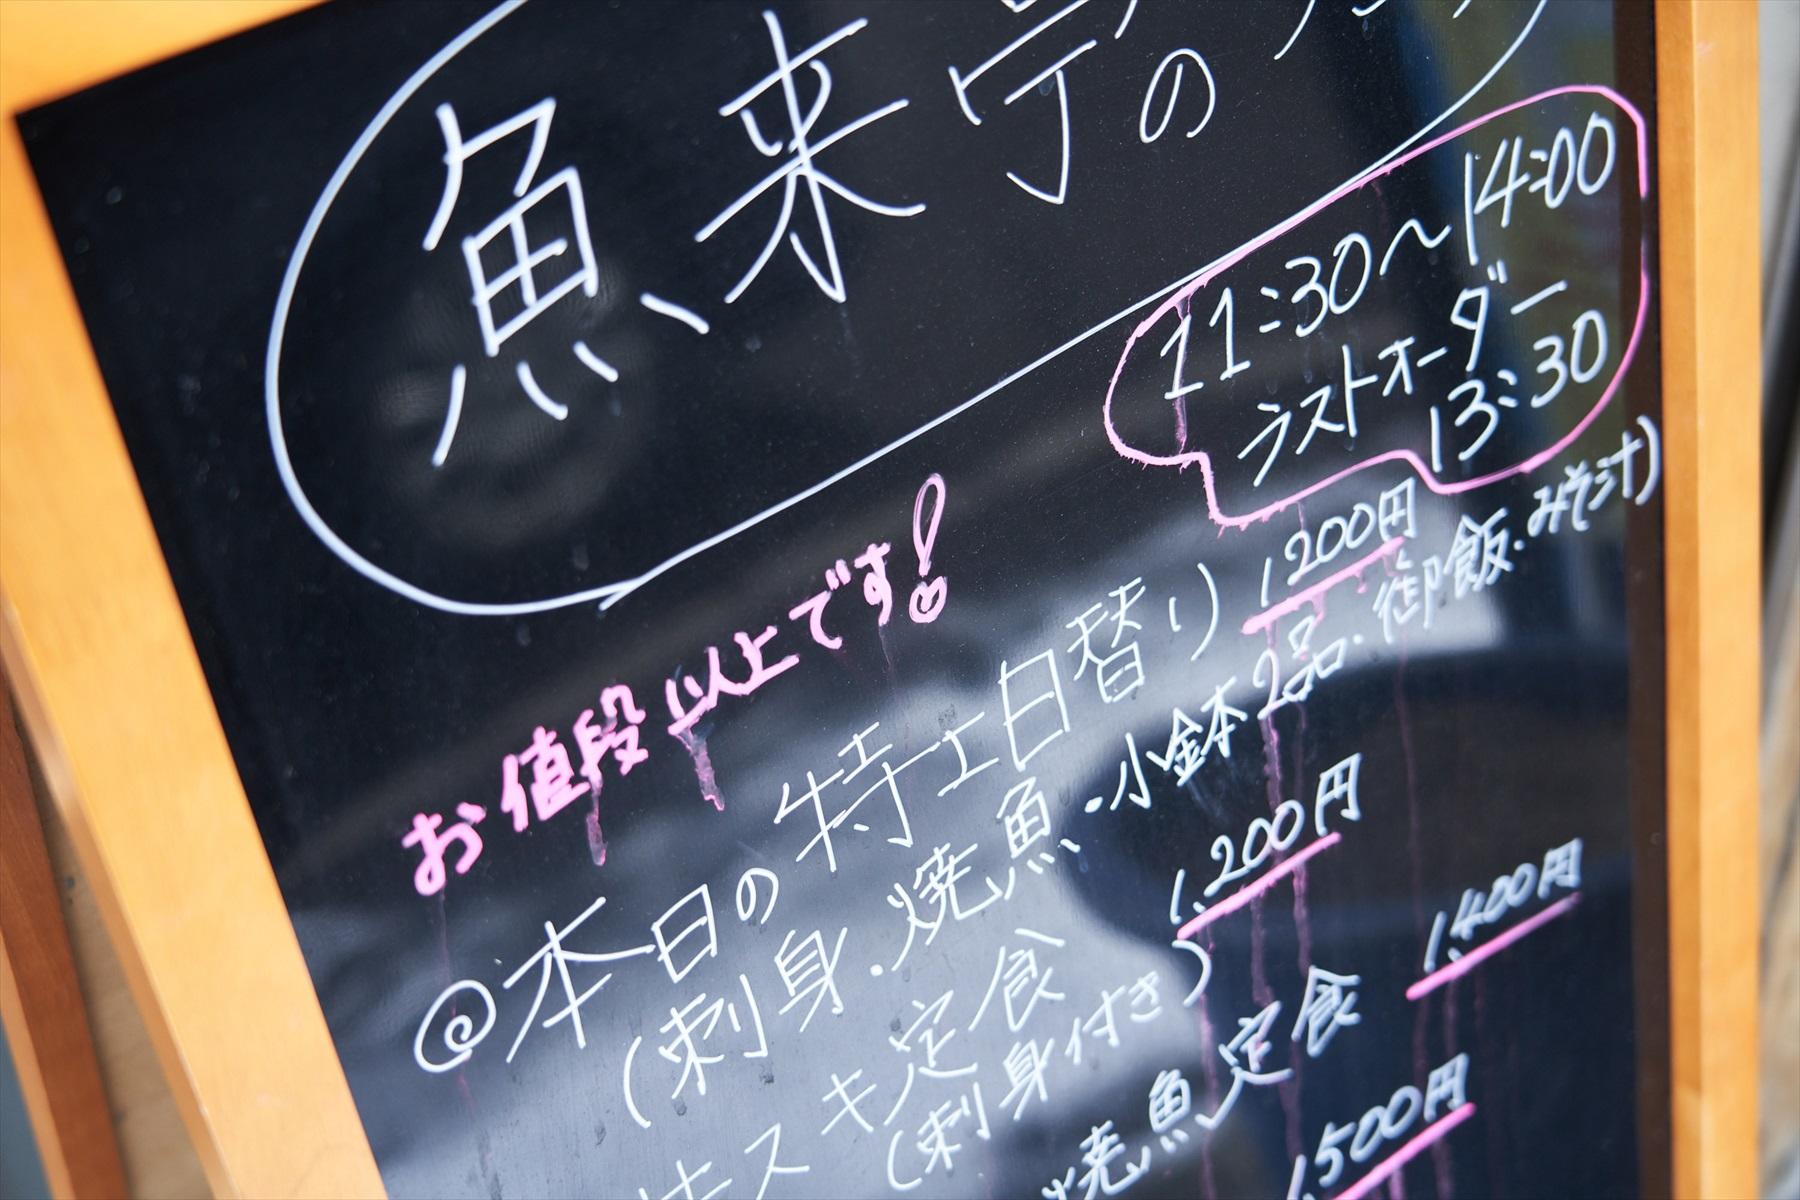 魚来亭の
11:30〜14:00
ラストオーダー
13:30
お値段以上です!
@本日の特上日替り 1200円
(刺身・焼魚・小鉢2品・御飯・みそ汁)
キスキ定食 1,200円
(刺身付き)
焼魚定食 1,400円
1,500円